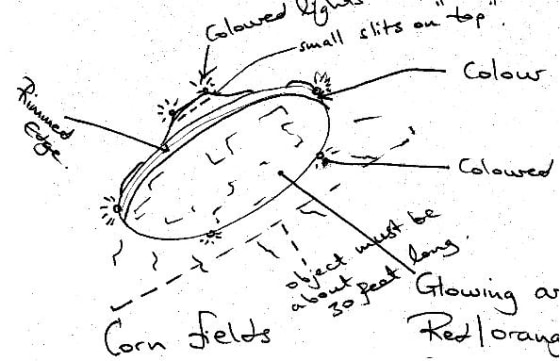 Coloured lights "top".
small slits on
Colour
Rimmed
Edge.
Coloured
object must be
about
30 feet long.
Glowing
Red/orang
Corn fields